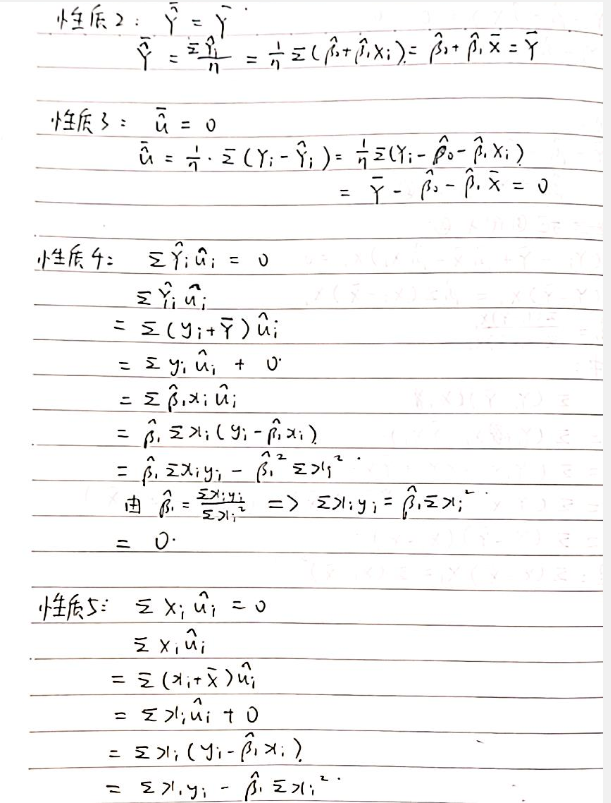 性质2: $\bar{\hat{Y}} = \bar{Y}$
$\bar{\hat{Y}} = \frac{\Sigma \hat{Y}_i}{n} = \frac{1}{n} \Sigma (\hat{\beta}_0 + \hat{\beta}_1 X_i) = \hat{\beta}_0 + \hat{\beta}_1 \bar{X} = \bar{Y}$
性质3: $\bar{\hat{u}} = 0$
$\bar{\hat{u}} = \frac{1}{n} \cdot \Sigma (Y_i - \hat{Y}_i) = \frac{1}{n} \Sigma (Y_i - \hat{\beta}_0 - \hat{\beta}_1 X_i)$
$= \bar{Y} - \hat{\beta}_0 - \hat{\beta}_1 \bar{X} = 0$
性质4: $\Sigma \hat{Y}_i \hat{u}_i = 0$
$\Sigma \hat{Y}_i \hat{u}_i$
$= \Sigma (y_i + \bar{Y}) \hat{u}_i$
$= \Sigma y_i \hat{u}_i + 0$
$= \Sigma \hat{\beta}_1 x_i \hat{u}_i$
$= \hat{\beta}_1 \Sigma x_i (y_i - \hat{\beta}_1 x_i)$
$= \hat{\beta}_1 \Sigma x_i y_i - \hat{\beta}_1^2 \Sigma x_i^2$
由 $\hat{\beta}_1 = \frac{\Sigma x_i y_i}{\Sigma x_i^2} \Rightarrow \Sigma x_i y_i = \hat{\beta}_1 \Sigma x_i^2$
$= 0$
性质5: $\Sigma X_i \hat{u}_i = 0$
$\Sigma X_i \hat{u}_i$
$= \Sigma (x_i + \bar{X}) \hat{u}_i$
$= \Sigma x_i \hat{u}_i + 0$
$= \Sigma x_i (y_i - \hat{\beta}_1 x_i)$
$= \Sigma x_i y_i - \hat{\beta}_1 \Sigma x_i^2$